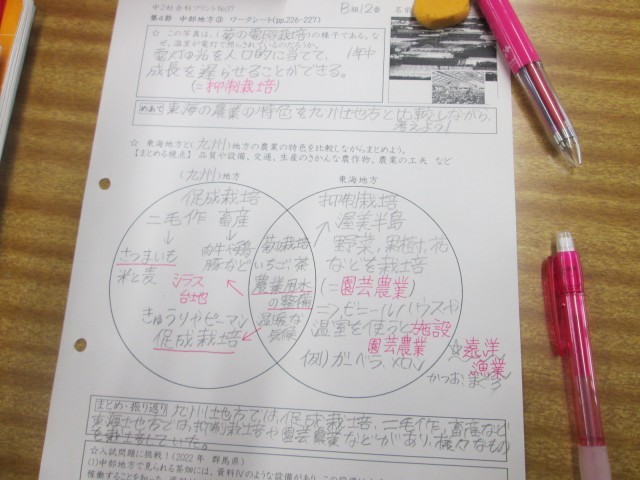 中2社会科プリントNo37
B組12番 名前
第4節 中部地方③ ワークシート(pp.226-227)
☆ この写真は、(菊の電照栽培)の様子である。な
ぜ、温室が電灯で照らされているのだろうか。
電灯の光を人口的に当てて、1年中
成長を遅らせることができる。
(=抑制栽培)
めあて 東海の農業の特色を九州地方と比較しながら、
考えよう!
☆ 東海地方と(九州)地方の農業の特色を比較しながらまとめよう。
【まとめる視点】 品質や設備、交通、生産のさかんな農作物、農業の工夫 など
(九州)地方
東海地方
促成栽培
二毛作 畜産
↓ ↓
さつまいも
肉牛や鶏
米と麦
豚など
シラス
台地
きゅうりやピーマン
促成栽培
菊の栽培
いちご、茶
農業用水
の整備
温暖な
気候
抑制栽培
渥美半島
野菜、果樹、花
などを栽培
(=園芸農業)
=>ビニールハウスや
温室を使った施設
園芸農業
例)ガーベラ、メロン
☆遠洋
漁業
かつお、まぐろ
まとめ・振り返り 九州地方では、促成栽培、二毛作、畜産など
東海地方では、抑制栽培や園芸農業などがあり、様々なもの
を栽培していた。
☆入試問題に挑戦!(2022年 群馬県)
(1)中部地方で見られる茶畑には、資料Ⅳのような設備があり、この設備は